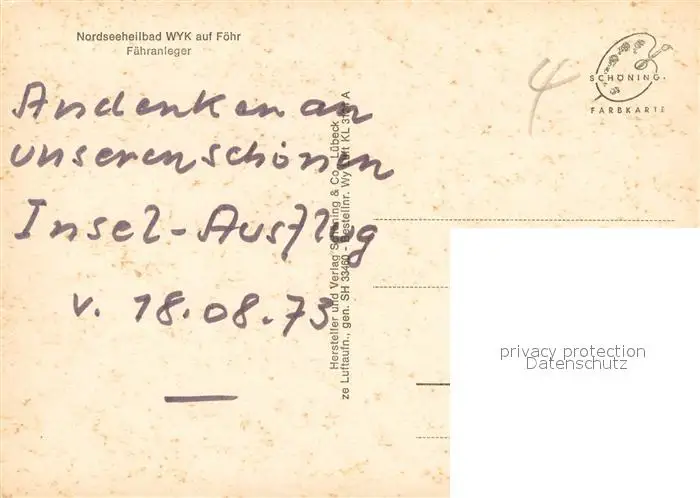 Nordseeheilbad WYK auf Föhr
Fähranleger
Andenken an
unseren schönen
Insel-Ausflug
v. 18.08.73
Hersteller und Verlag Schöning & Co., Lübeck
ze Luftaufn., gen. SH 33460 - Bestellnr. Wy KL A
4
SCHÖNING
FARBKARTE
privacy protection
Datenschutz